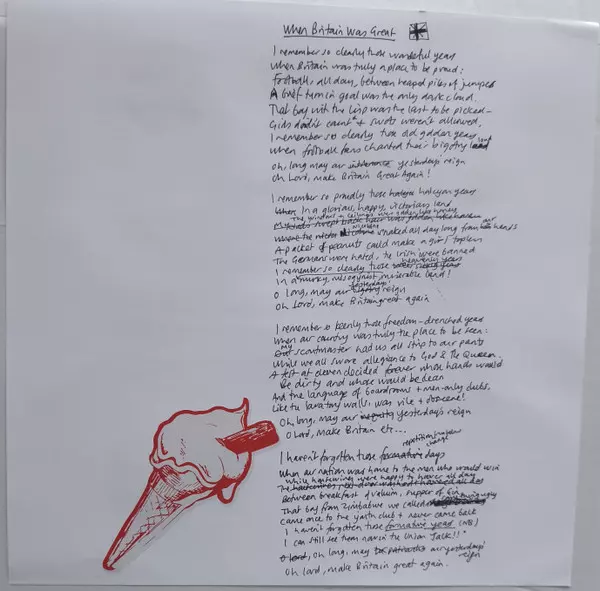 When Britain Was Great
I remember so clearly those wonderful years
When Britain was truly a place to be proud:
Football, all day, between heaped piles of jumpers
A brief turn in goal was the only dark cloud.
That boy with the lisp was the last to be picked—
Girls didn't count & swots weren't allowed,
I remember so clearly those old golden years
When football fans chanted their bigotry loud
Oh, long may our yesterdays' reign
Oh Lord, make Britain Great Again!
I remember so proudly those halcyon years
In a glorious, happy, Victorian land
The windows & ceilings was
nicotine smoked all day long from our heads
A packet of peanuts could make a girl topless
The Germans were hated, the Irish were banned
I remember so clearly those heavenly years
In a murky, misogynist, miserable land!
O long, may our yesterdays' reign
Oh Lord, make Britain great again
I remember so keenly those freedom-drenched years
When our country was truly the place to be seen:
My scoutmaster had us all strip to our pants
While we all swore allegiance to God & The Queen.
A test at eleven decided forever whose hands would
Be dirty and whose would be clean
And the language of boardrooms & men-only clubs,
Like the lavatory walls, was vile & obscene!
Oh, long, may our yesterdays reign
O Lord, make Britain etc...
repetition
change
I haven't forgotten those formative days
When our nation was home to the men who would win
While were happy to all day
Between breakfast of valium, supper of Gin
That boy from Zimbabwe we called
Came once to the youth club & never came back
I haven't forgotten those formative years (NB)
I can still see them names the Union Jack!!
Oh, long, may our yesterdays' reign
Oh lord, make Britain great again.